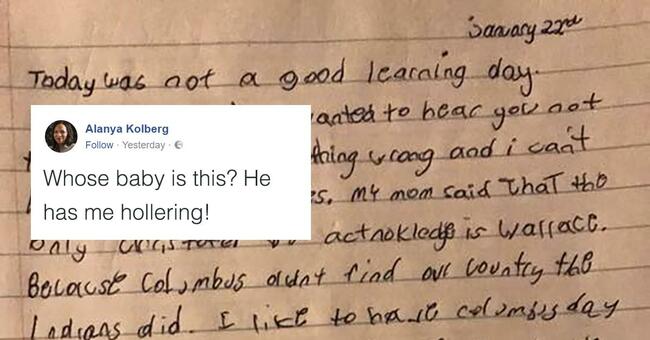 January 22nd
Today was not a good learning day.
anted to hear you not
Alanya Kolberg
Follow · Yesterday ·
Whose baby is this? He
has me hollering!
thing wrong and i can't
es. My mom said that the
only actnoklege is Wallace.
Because Columbus didnt find our country the
Indians did. I like to have columbus day